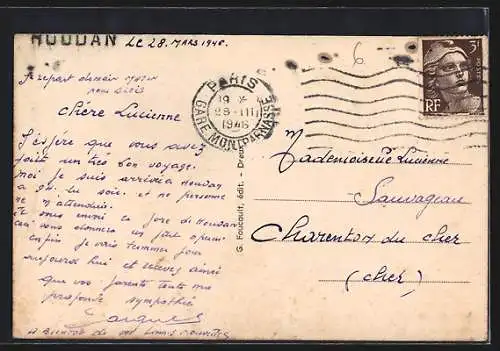 HOUDAN
LE 28. MARS 1946.
Je repart demain MATIN
pour BLOIS
Chère Lucienne
J'espère que vous avez
fait un tres bon voyage.
moi je suis arrivé a Houdan
a 9h. du soir et ne personne
ne m'attendais.
Je vous envoi la Gare de Houdan
ceci vous donnera un petit aperçu
enfin je vais terminer pour
aujourd'hui et recevez ainsi
que vos parents toute ma
profonde sympathie
A BIENTOT de vos bonnes nouvelles
PARIS
19 *
28 -III
1946
GARE MONTPARNASSE
3F
RF
G. Foucault, édit. - Dreux
Mademoiselle Lucienne
Sauvageau
Charenton du Cher
(Cher)
6